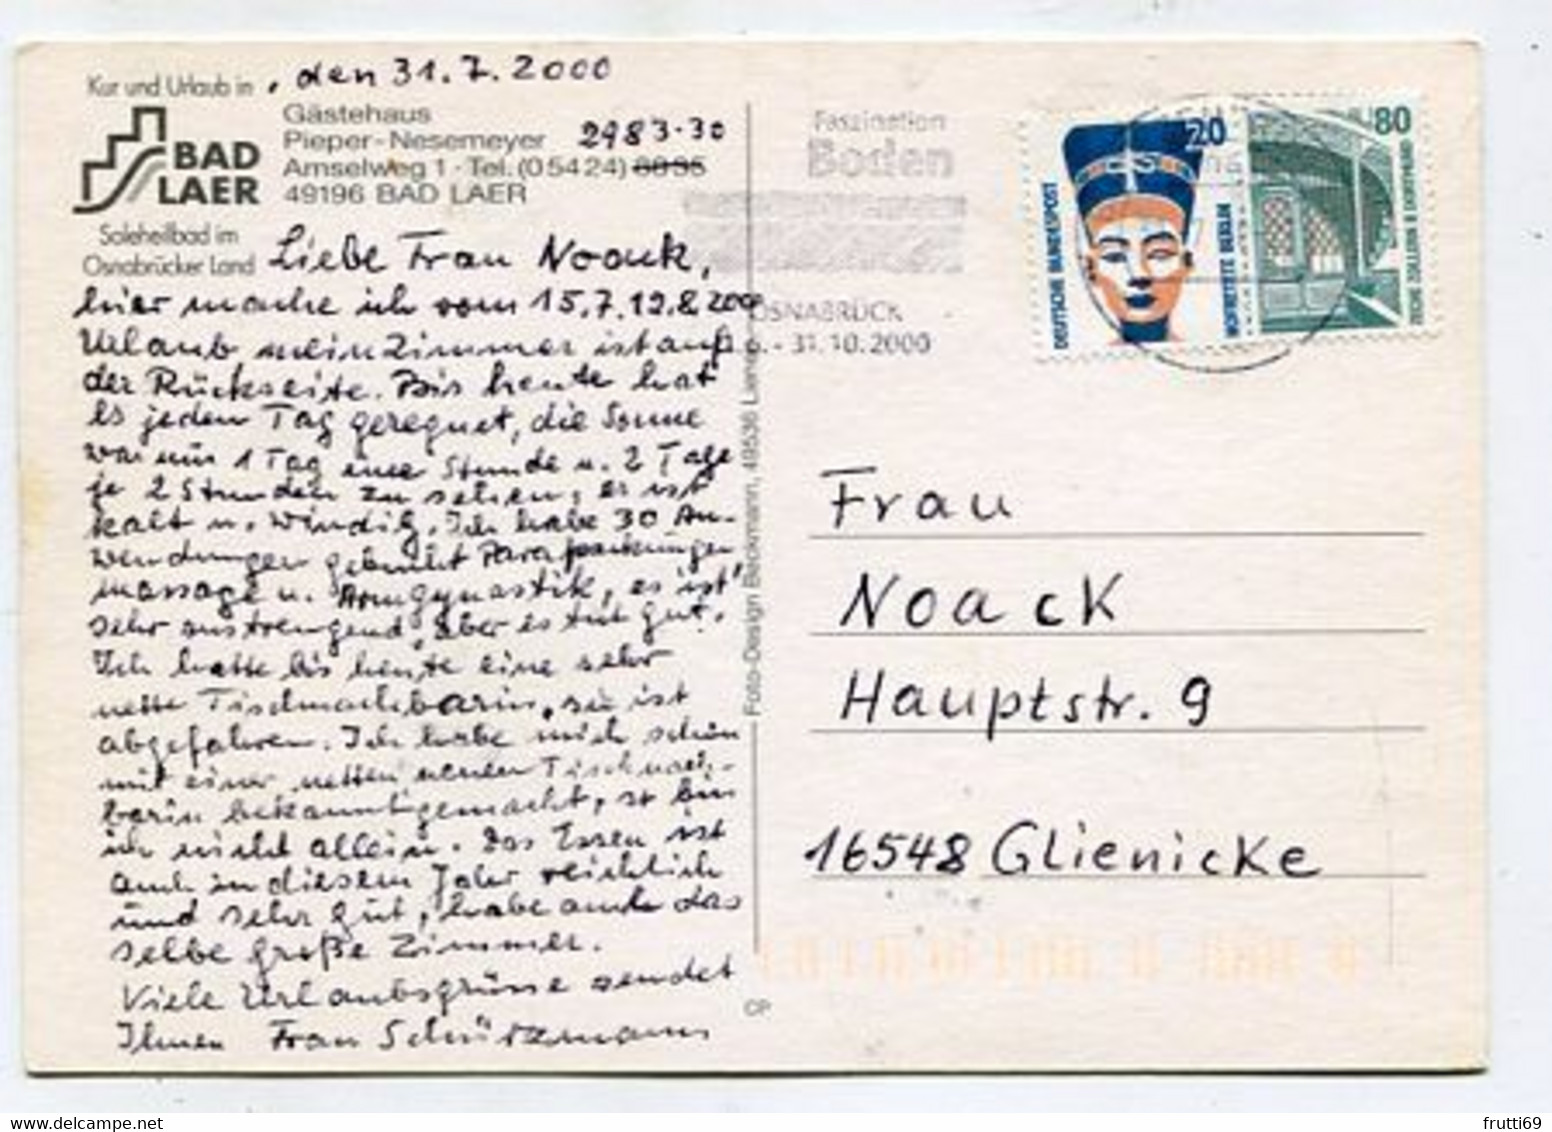 Kur und Urlaub in
, den 31.7.2000
BAD
LAER
Soleheilbad im
Osnabrücker Land
Gästehaus
Pieper-Nesemeyer
2983-30
Amselweg 1 · Tel. (05424) 8835
49196 BAD LAER
Liebe Frau Noack,
hier mache ich vom 15.7.19.8.2000
Urlaub, mein Zimmer ist auf
der Rückseite. Bis heute hat
es jeden Tag geregnet, die Sonne
war nur 1 Tag eine Stunde u. 2 Tage
je 2 Stunden zu sehen, es ist
kalt u. windig. Ich habe 30 An-
wendungen gebucht
massage u. gymnastik, es ist
sehr anstrengend, aber es tut gut.
Ich hatte bis heute eine sehr
nette Tischnachbarin, sie ist
abgefahren. Ich habe mich schon
mit einer netten neuen Tischnach-
barin bekannt gemacht, so bin
ich nicht allein. Das Essen ist
auch in diesem Jahr reichlich
und sehr gut, habe auch das
selbe große Zimmer.
Viele Urlaubsgrüsse sendet
Ihnen Frau Schützmann
Foto-Design Beckmann, 49536 Lienen
CP
Faszination
Boden
OSNABRÜCK
- 31.10.2000
DEUTSCHE BUNDESPOST
20
NOFRETETE BERLIN
80
ZECHE ZOLLERN II DORTMUND
Frau
Noack
Hauptstr. 9
16548 Glienicke
frutti69